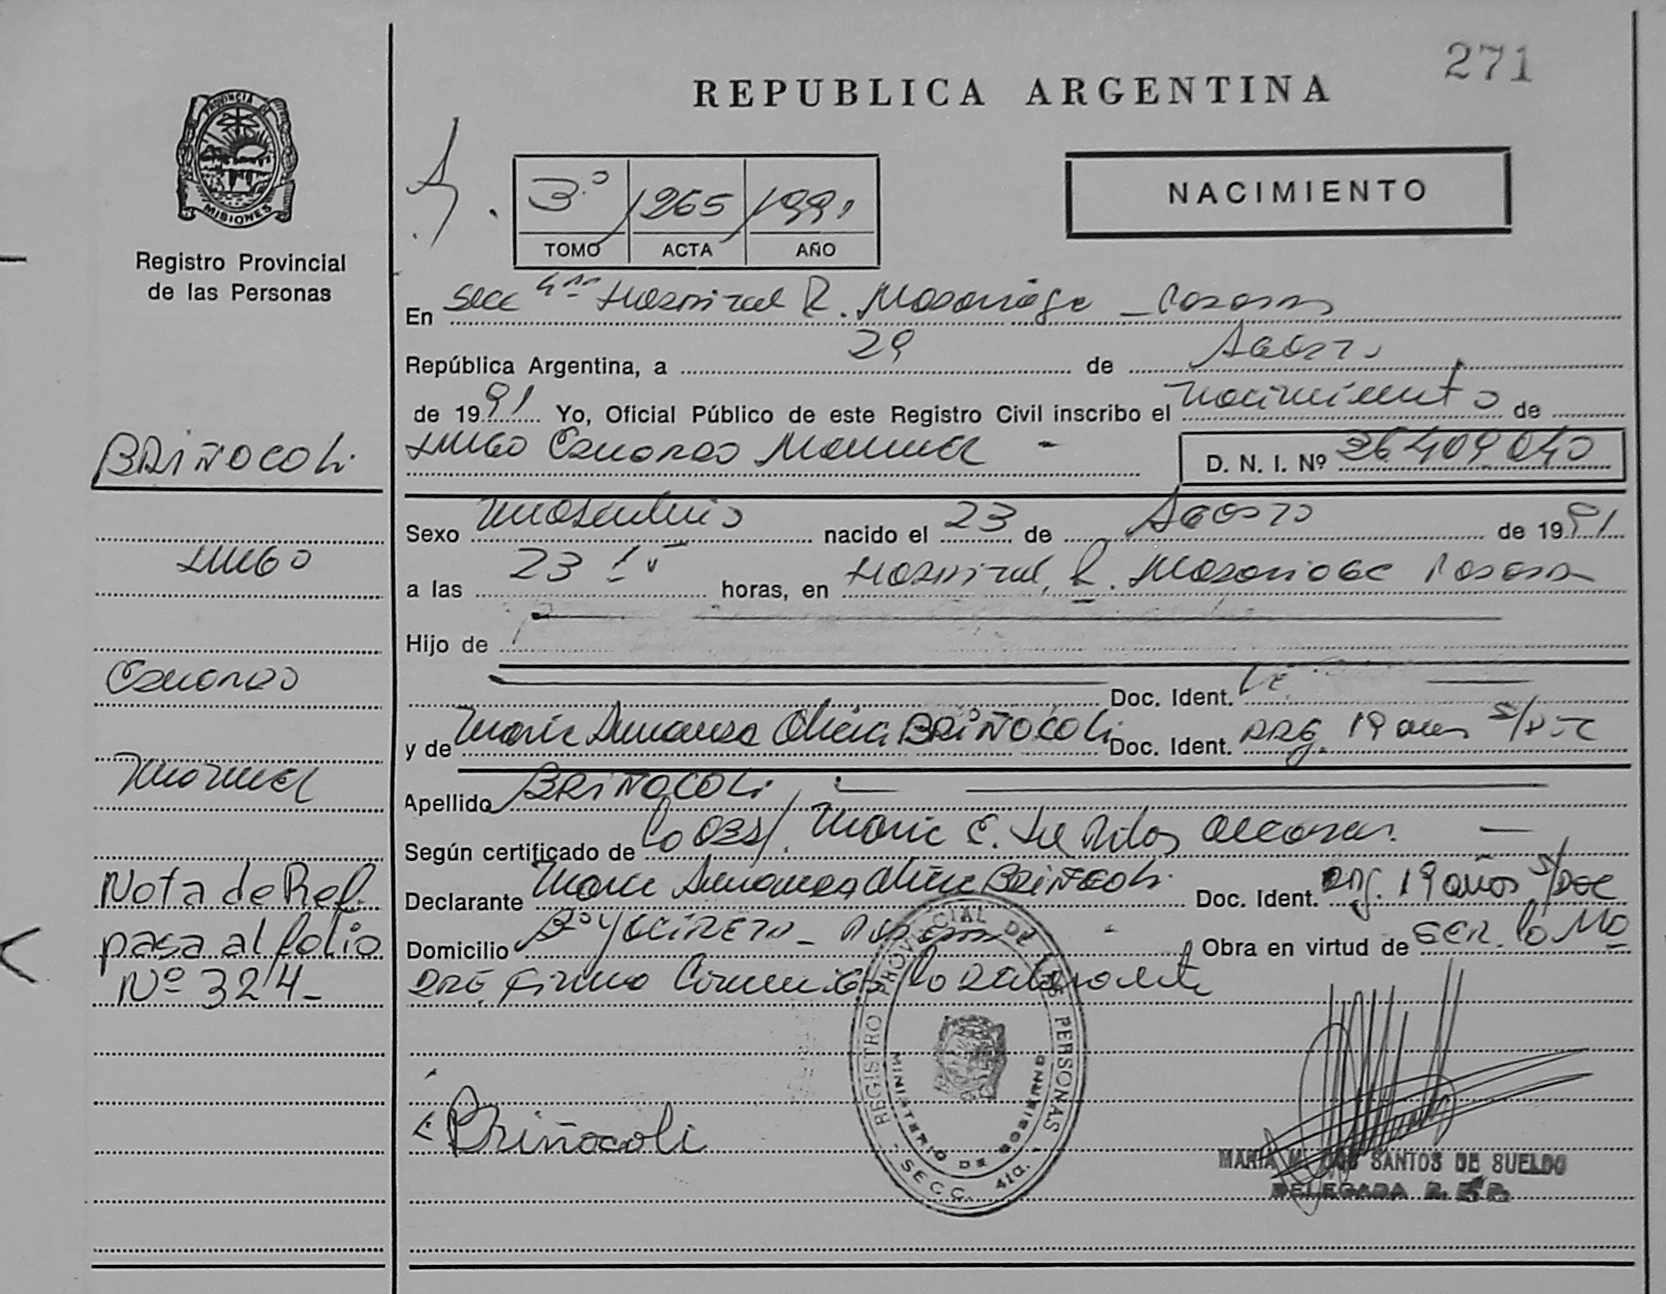 271
REPUBLICA ARGENTINA
PROVINCIA DE
MISIONES
Registro Provincial
de las Personas
3º 1265 1991
TOMO ACTA AÑO
NACIMIENTO
En Secc 4ta Hospital R. Madariaga - Posadas
República Argentina, a 29 de Agosto
de 1991 Yo, Oficial Público de este Registro Civil inscribo el nacimiento de
HUGO Manuel - D. N. I. Nº 36409040
BRIÑOCOLI
HUGO
Manuel
Nota de Ref.
pasa al folio
Nº 324-
Sexo masculino nacido el 23 de Agosto de 1991
a las 23 horas, en Hospital R. Madariaga Posadas
Hijo de
Doc. Ident.
y de María Alicia BRIÑOCOLi Doc. Ident. ARG. 19 años S/DOC
Apellido BRIÑOCOLi
Según certificado de la OBST. María E.
Declarante María Alicia Briñocoli Doc. Ident. ARG. 19 años S/DOC
Domicilio Bº YACIRETA - Posadas Obra en virtud de SER la Md
PRE. Firma la Declarante
Briñocoli
REGISTRO PROVINCIAL DE LAS PERSONAS
MINISTERIO DE GOBIERNO
SECC. 4ta.
MARIA M. DOS SANTOS DE SUELDO
DELEGADA R. P. P.